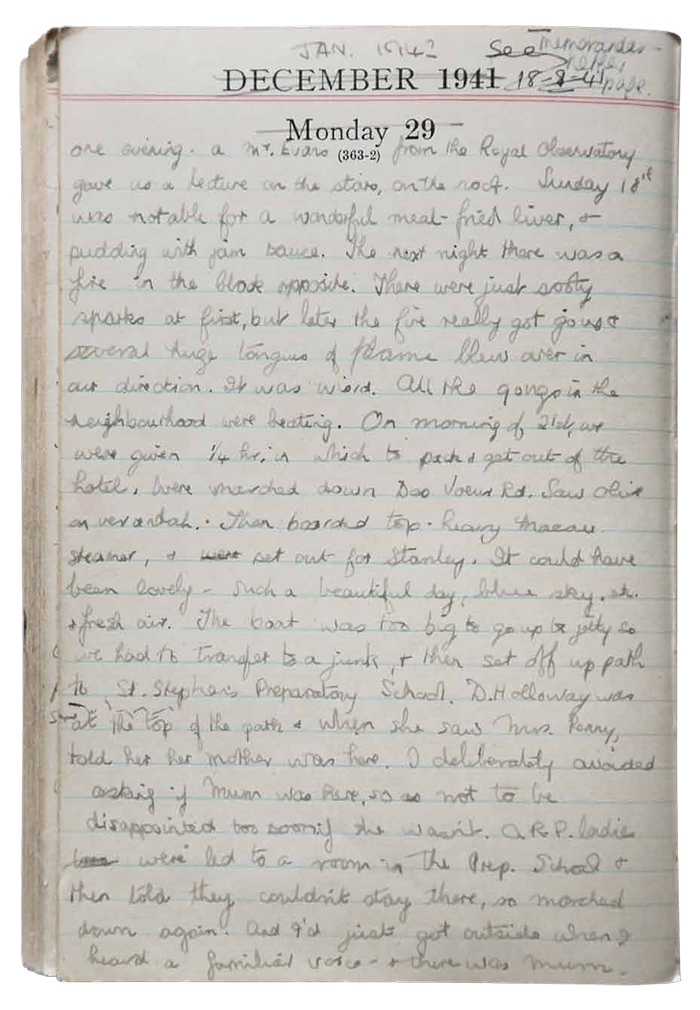 JAN. 1942
See memorandum
DECEMBER 1941 18-8-41 page.
Monday 29
(363-2)
one evening. a Mr. Evans from the Royal Observatory
gave us a lecture on the stars, on the roof. Sunday 18th
was notable for a wonderful meal - fried liver, &
pudding with jam sauce. The next night there was a
fire in the block opposite. There were just sooty
sparks at first, but later the fire really got going &
several huge tongues of flame blew over in
our direction. It was wierd. All the gongs in the
neighbourhood were beating. On morning of 21st, we
were given 1/4 hr. in which to pack & get out of the
hotel. Were marched down Des Voeux Rd. Saw Olive
on verandah. Then boarded top-heavy Macau
steamer, & were set out for Stanley. It could have
been lovely - such a beautiful day, blue sky, etc.
& fresh air. The boat was too big to go up to jetty so
we had to transfer to a junk, & then set off up path
to St. Stephen's Preparatory School. D. Holloway was
at the top of the path & when she saw Mrs. Penny,
told her her mother was here. I deliberately avoided
asking if Mum was here, so as not to be
disappointed too soon if she wasn't. A.R.P. ladies
were led to a room in the Prep. School &
then told they couldn't stay there, so marched
down again. And I'd just got outside when I
heard a familiar voice - & there was Mum.